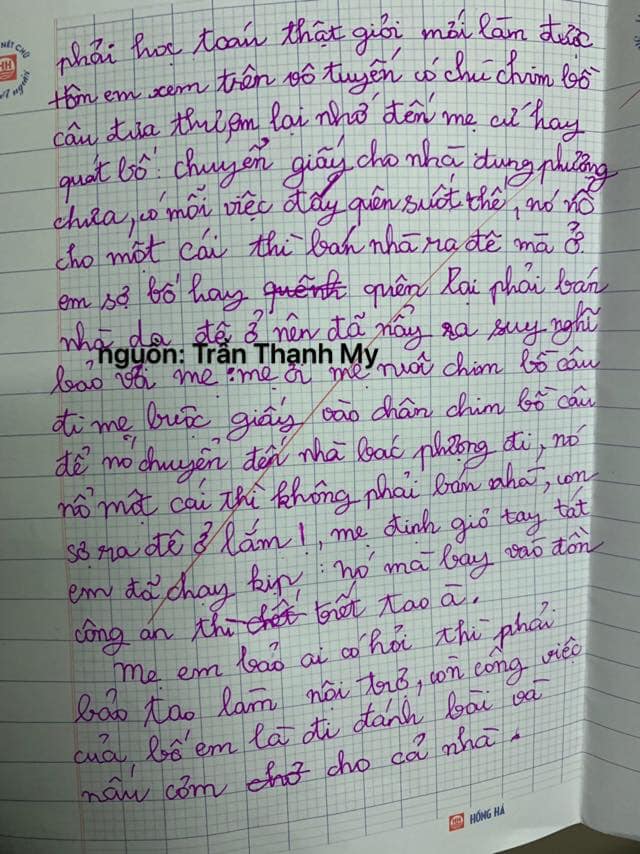 phải học toán thật giỏi mới làm được
tôm em xem trên vô tuyến có chú chim bồ
câu đưa thư em lại nhớ đến mẹ cứ hay
quát bố: chuyển giấy cho nhà dung phượng
chưa, có mỗi việc đấy quên suốt thế, nó nổ
cho một cái thì bán nhà ra đê mà ở.
em sợ bố hay quên lại phải bán
nhà ra đê ở nên đã nẩy ra suy nghĩ
nguồn: Trần Thanh My
bảo với mẹ: mẹ ơi mẹ nuôi chim bồ câu
đi mẹ buộc giấy vào chân chim bồ câu
để nó chuyển đến nhà bác phượng đi, nó
nổ một cái thì không phải bán nhà, con
sợ ra đê ở lắm!, mẹ định giơ tay tát
em đã chạy kịp: nó mà bay vào đồn
công an thì chết tao à.
Mẹ em bảo ai có hỏi thì phải
bảo tao làm nội trợ, còn công việc
của bố em là đi đánh bài và
nấu cơm cho cả nhà.
NÉT CHỮ
HH
HỒNG HÀ